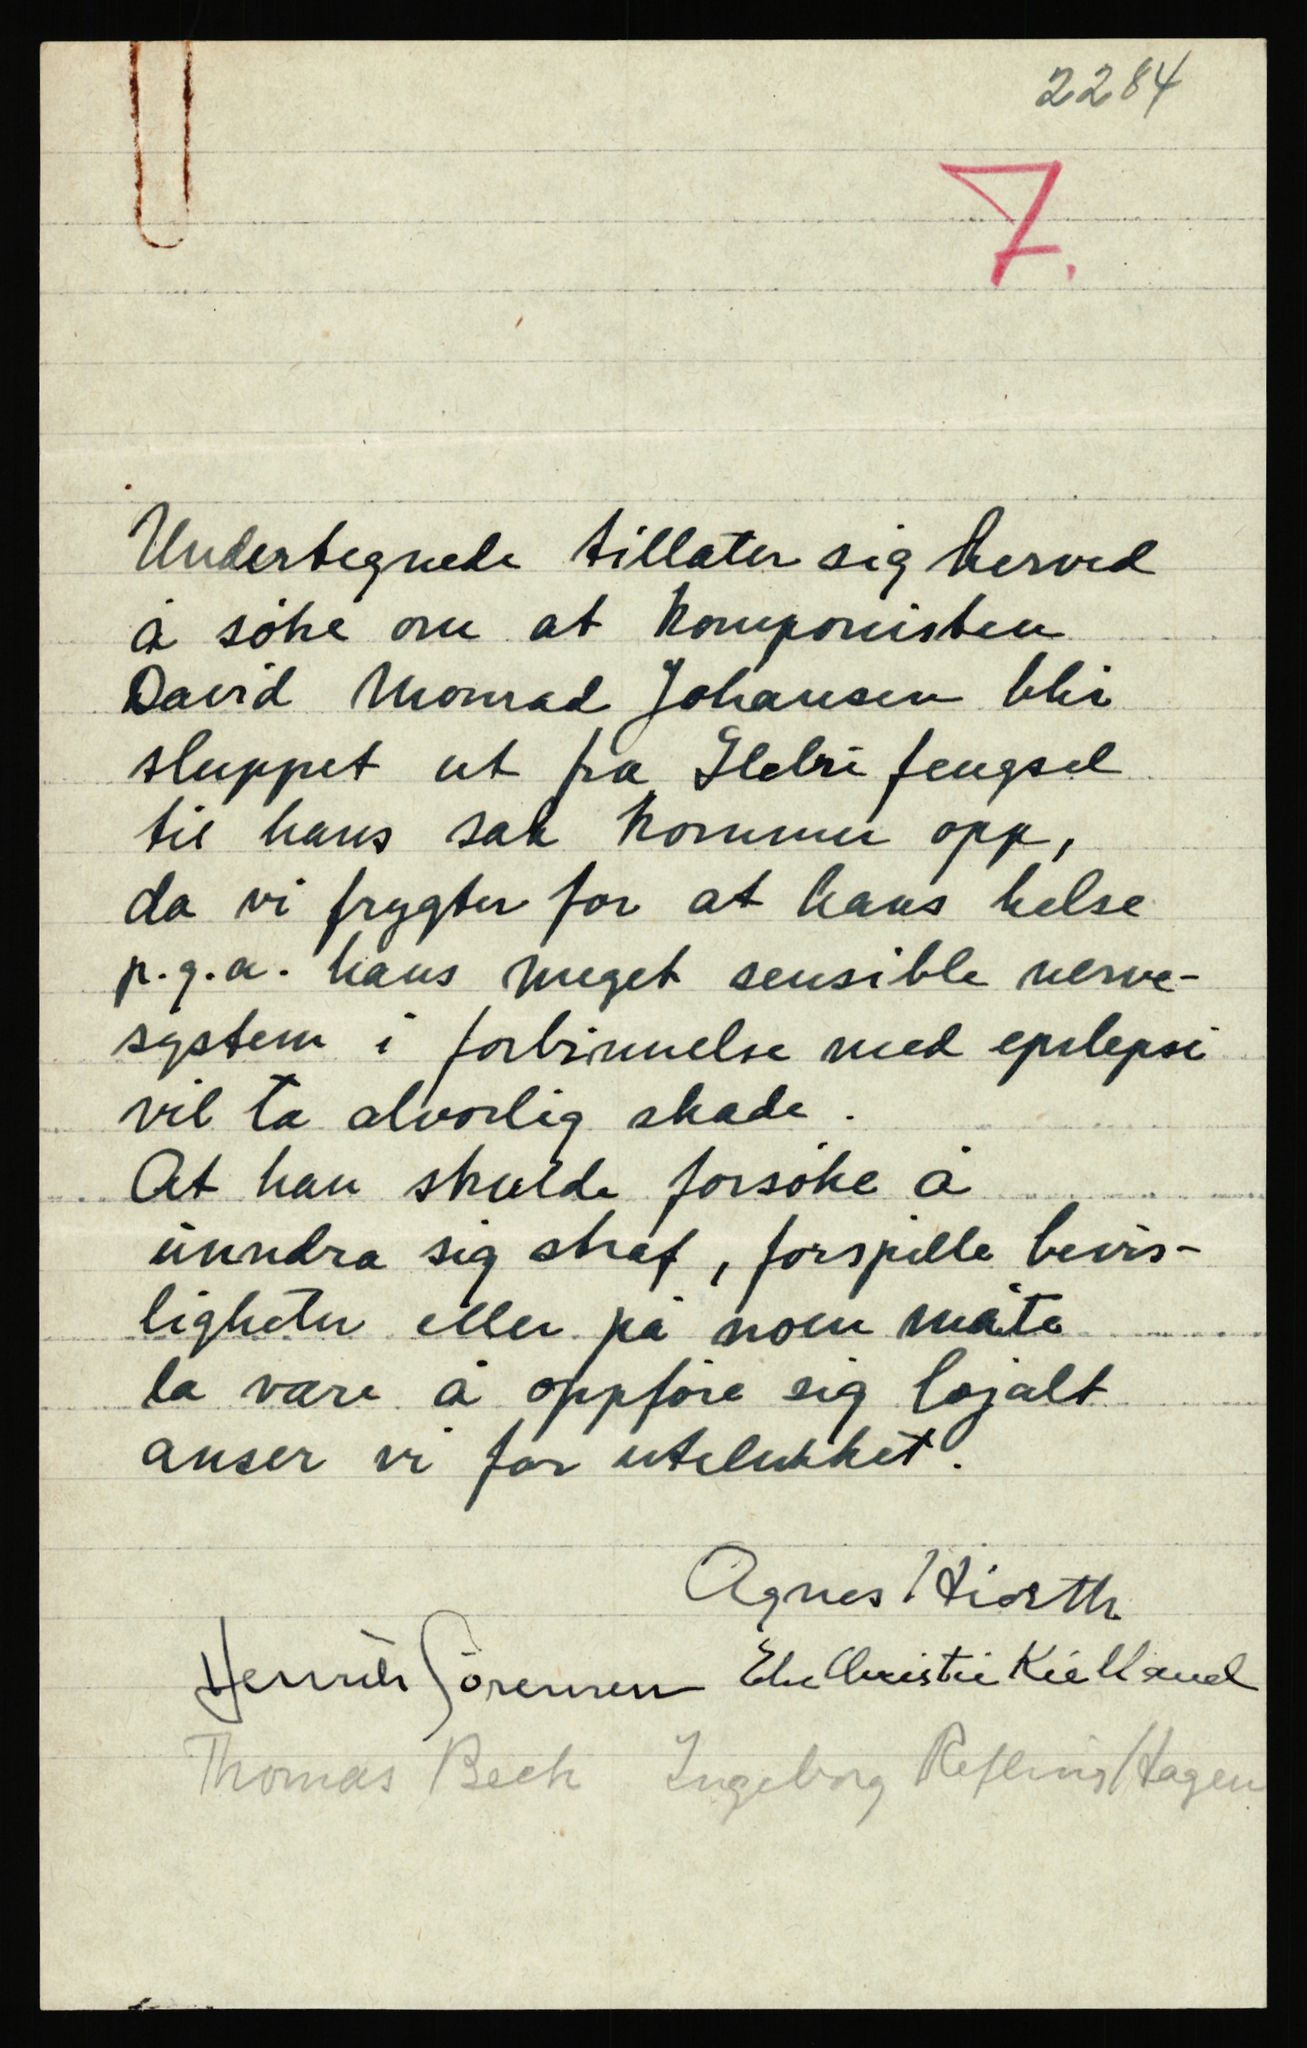 2284
7.
Undertegnede tillater sig herved
å söke om at komponisten
David Monrad Johansen blir
sluppet ut fra Ilebu fengsel
til hans sak kommer opp,
da vi frygter for at hans helse
p.g.a. hans meget sensible nerve-
system i forbinnelse med epilepsi
vil ta alvorlig skade.
At han skulde forsöke å
unndra sig straf, forspille bevis-
ligheter eller på noen måte
la være å oppföre sig lojalt
anser vi for utelukket.
Agnes Hiorth
Henrik Sörensen Else Christie Kielland
Thomas Beck Ingeborg Refling Hagen